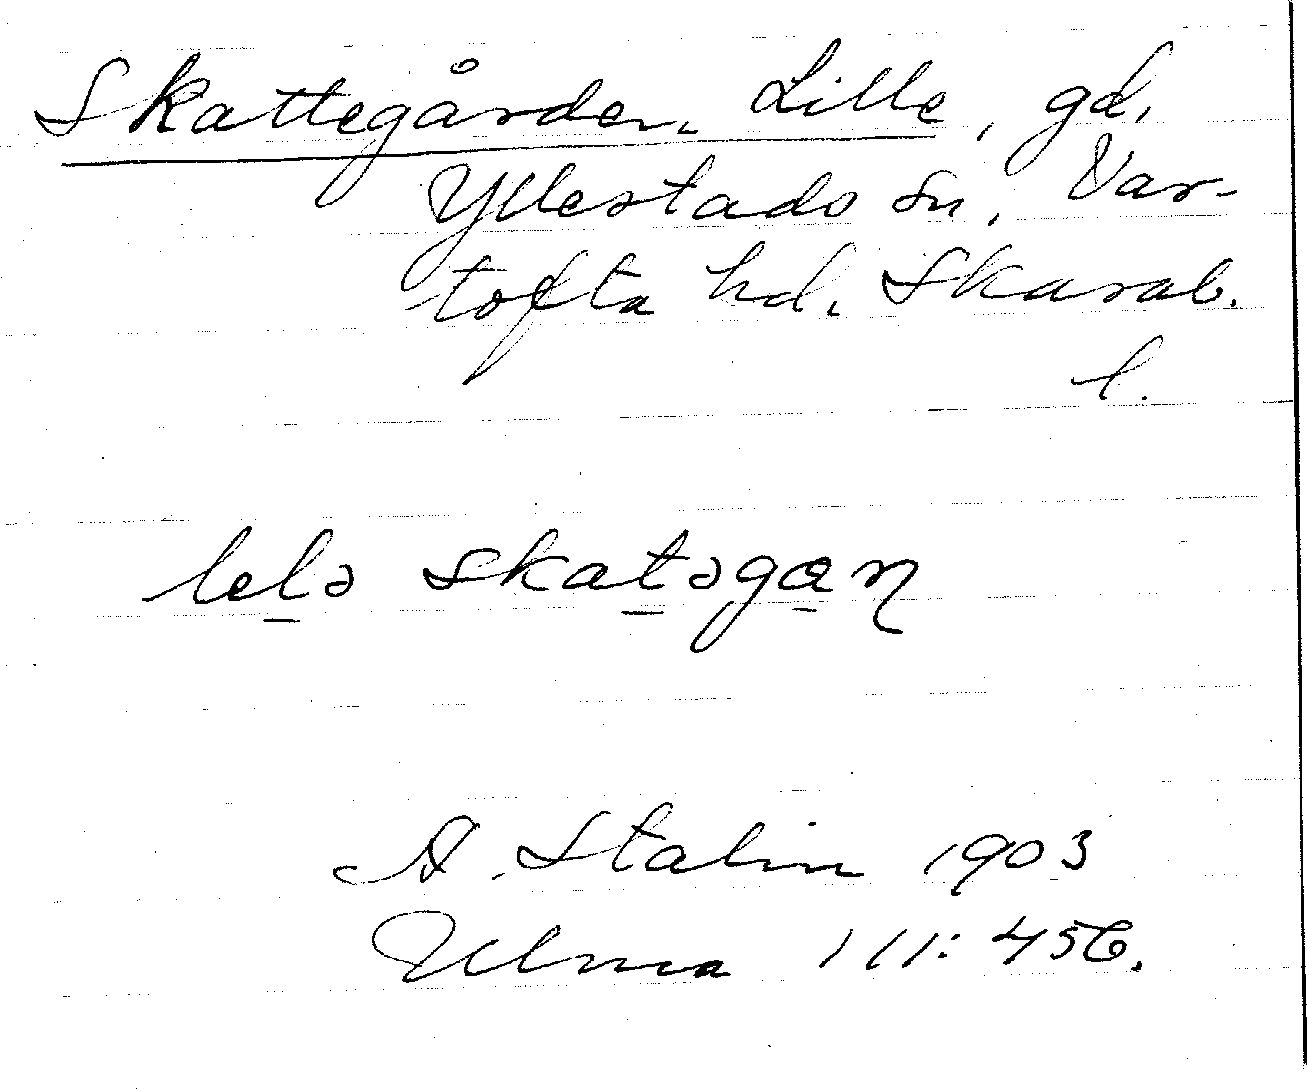 Skattegården, Lille, gd.
Yllestads sn, Var-
tofta hd, Skarab.
l.
lelə skatəgαɳ
A. Stalin 1903
Ulma 111:456.